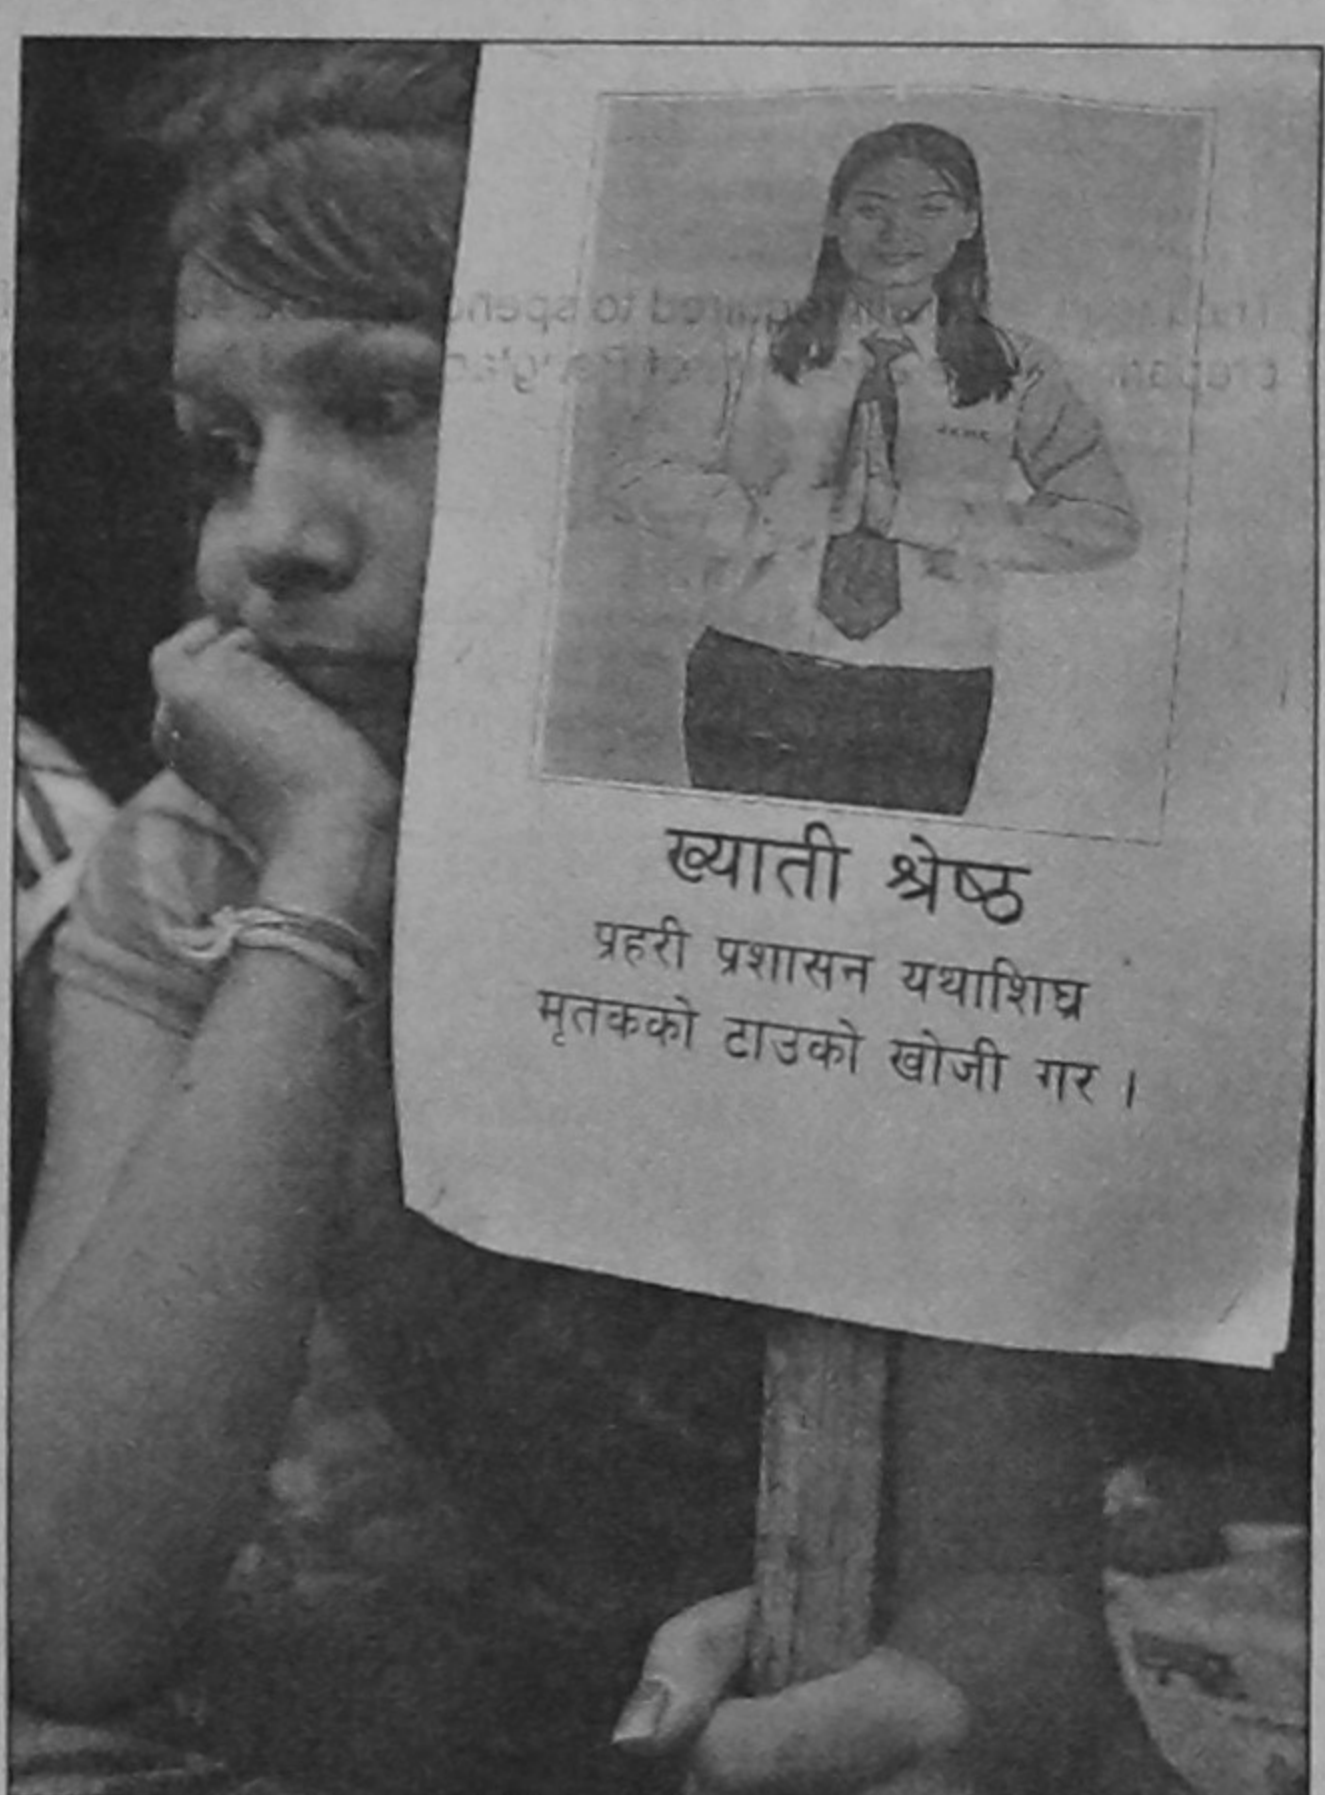 ख्याती श्रेष्ठ
प्रहरी प्रशासन यथाशिघ्र
मृतकको टाउको खोजी गर ।